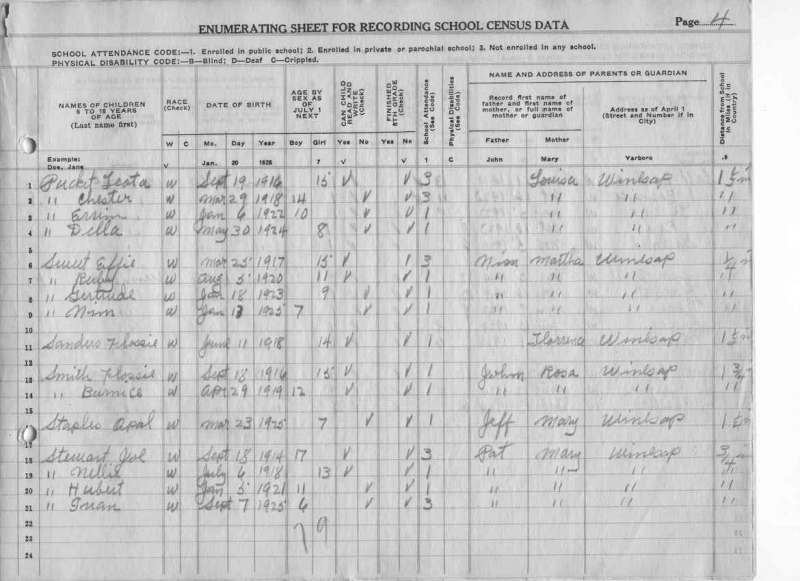 Page 4
ENUMERATING SHEET FOR RECORDING SCHOOL CENSUS DATA
SCHOOL ATTENDANCE CODE:—1. Enrolled in public school; 2. Enrolled in private or parochial school; 3. Not enrolled in any school.
PHYSICAL DISABILITY CODE:—B—Blind; D—Deaf C—Crippled.
NAMES OF CHILDREN 6 TO 18 YEARS OF AGE (Last name first)
RACE (Check)
DATE OF BIRTH
AGE BY SEX AS OF JULY 1 NEXT
CAN CHILD READ AND WRITE (Check)
FINISHED 8TH GRADE (Check)
School Attendance (See Code)
Physical Disabilities (See Code)
NAME AND ADDRESS OF PARENTS OR GUARDIAN
Record first name of father and first name of mother, or full name of mother or guardian
Address as of April 1 (Street and Number if in City)
Distance from School in Miles (if in Country)
W C Mo. Day Year Boy Girl Yes No Yes No Father Mother
Example: Doe, Jane V Jan. 20 1926 7 V V 1 C John Mary Yarboro .5
1 Pucket Leota W Sept 19 1916 15 V V 3 Louisa Winesap 1 1/2 m
2 " Chester W Mar 29 1918 14 V V 3 " " "
3 " W Jan 6 1922 10 V V 1 " " "
4 " Della W May 30 1924 8 V V 1 " " "
5
6 Sweet Effie W Mar 25 1917 15 V 1 3 Nim Martha Winesap 1/4 m
7 " Ruby W Aug 5 1920 11 V V 1 " " " "
8 " Gertrude W Jan 18 1923 9 V V 1 " " " "
9 " Nim W Jan 13 1925 7 V V 1 " " " "
10
11 Sanders Flossie W June 11 1918 14 V V 1 Florence Winesap 1 1/2 m
12
13 Smith Flossie W Sept 18 1916 15 V V 1 John Rosa Winesap 1 3/4 m
14 " Burnice W Apr 29 1919 12 V V 1 " " " "
15
Staples Opal W Mar 23 1925 7 V V 1 Jeff Mary Winesap 1 1/2 m
17
18 Stewart Joe W Sept 18 1914 17 V V 3 Pat Mary Winesap 3/4 m
19 " Nellie W July 6 1918 13 V V 1 " " " "
20 " Hubert W Jan 5 1921 11 V V 1 " " " "
21 " W Sept 7 1925 6 V V 3 " " " "
22 7 9
23
24